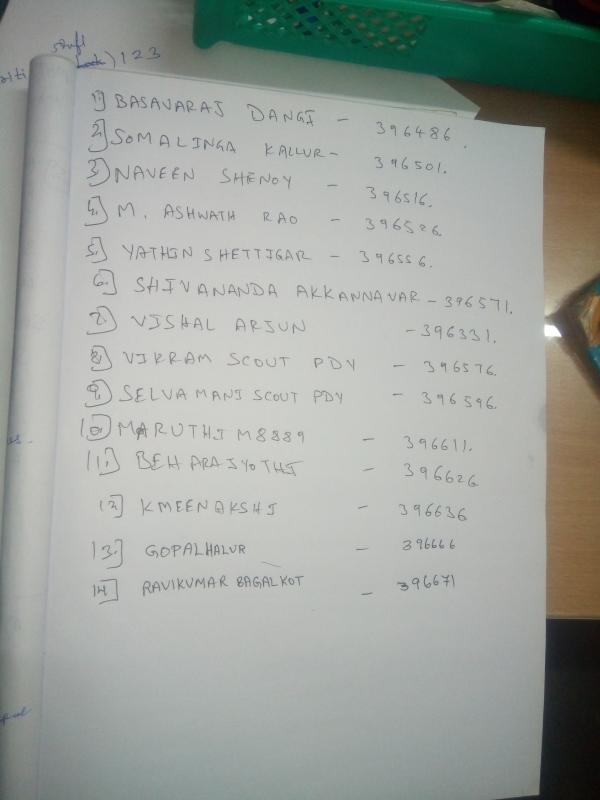 staff
) 123
1) BASAVARAJ DANGI - 396486.
2) SOMALINGA KALLUR - 396501.
3) NAVEEN SHENOY - 396516.
4.) M. ASHWATH RAO - 396526.
5.) YATHIN SHETTIGAR - 396556.
6.) SHIVANANDA AKKANNAVAR - 396571.
7.) VISHAL ARJUN - 396331.
8.) VIKRAM SCOUT PDY - 396576.
9.) SELVAMANI SCOUT PDY - 396596.
10) MARUTHI M8889 - 396611.
11.) BEHARAJYOTHI - 396626
12] KMEENAKSHI - 396636
13.] GOPALHALUR - 396666
14] RAVIKUMAR BAGALKOT - 396671